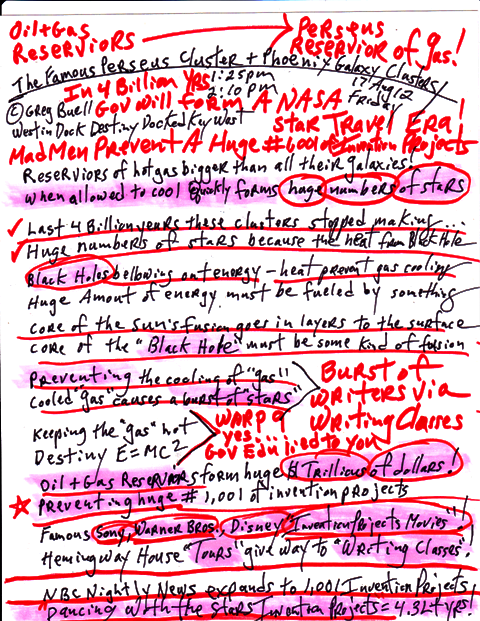 Oil+Gas
Reserviors
Perseus
Reservior of gas!
The Famous Perseus Cluster + Phoenix Galaxy Clusters/
In 4 Billion yrs 1:25pm
2:10pm
17 Aug 12
Friday
© Greg Buell Gov will form A NASA
Westin Dock Destiny Docked Key West
Star Travel Era!
Mad Men Prevent A Huge # 1,001 of Invention Projects
Reserviors of hot gas bigger than all their galaxies!
when allowed to cool quickly forms huge numbers of stars
Last 4 Billion years these clusters stopped making...
Huge numbers of stars because the heat from Black Hole
Black Holes bellowing out energy – heat prevent gas cooling
Huge Amount of energy must be fueled by something
core of the Sun's fusion goes in layers to the surface
core of the "Black Hole" must be some kind of fusion
Preventing the cooling of "gas"!
Cooled "gas" causes a burst of stars"
Burst of
writers via
Writing Classes
Keeping the "gas" hot
Destiny E=MC2
WARP 9
yes...
Gov Edu lied to you
Oil + Gas Reserviors form huge $ Trillions of dollars!
Preventing huge # 1,001 of invention projects
Famous Sony, Warner Bros., Disney "Invention Projects Movies"!
Hemingway House "Tours" give way to "Writing Classes"!
NBC Nightly News expands to 1,001 Invention Projects
Dancing with the Stars Invention Projects = 4.3Lt yrs!